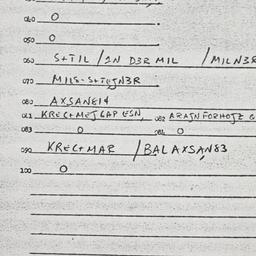 040 O
050 O
060 S+TIL / IN D3R MIL / MILN3R
070 MILS-S+TEJN3R
080 AXSAN814
081 KREC+MEJ GAP ESN, 082 ARAJN FORHOJZ
083 O 084 O
090 KREC+MAR / BALAXSAN83
100 O